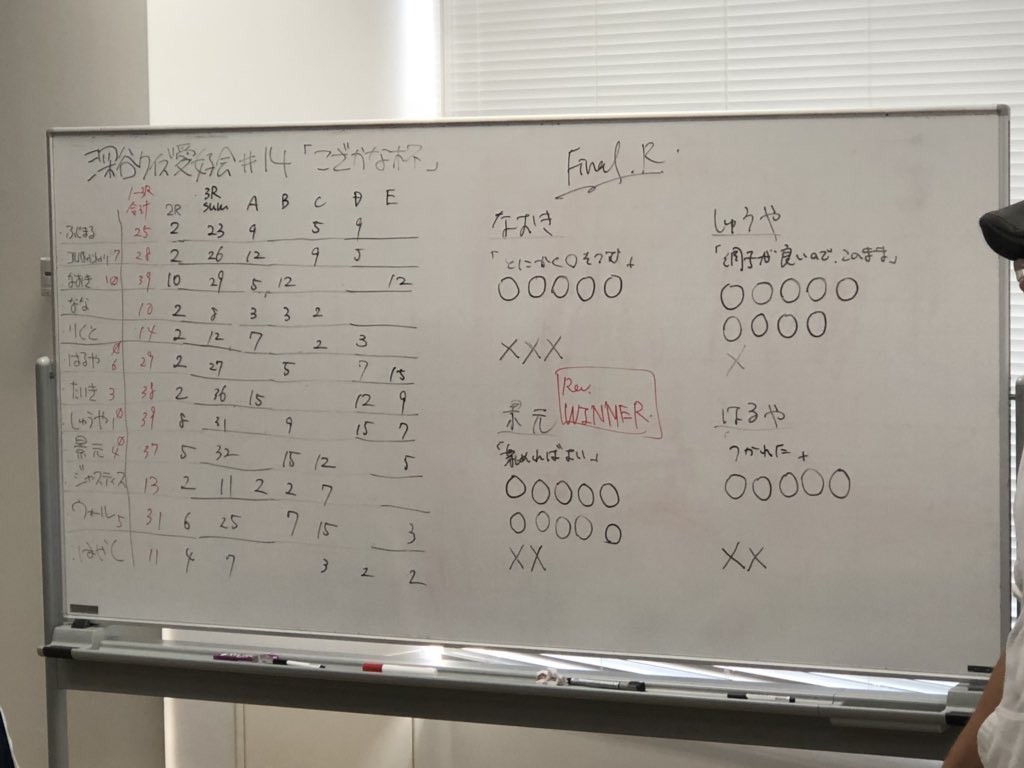 深谷クイズ愛好会#14「こざかな杯」
1-3R合計 2R 3R Sum A B C D E
ふじまる 25 2 23 9 5 9
28 2 26 12 9 5
なおき 10 39 10 29 5 12 12
なな 10 2 8 3 3 2
りくと 14 2 12 7 2 3
はるや 6 29 2 27 5 7 15
たいき 3 38 2 36 15 12 9
しゅうや 10 39 8 31 9 15 7
景元 4 37 5 32 15 12 5
ジャスティス 13 2 11 2 2 7
ウォール 5 31 6 25 7 15 3
はやし 11 4 7 3 2 2
Final.R.
なおき
「とにかく〇そつむ」
〇〇〇〇〇
×××
しゅうや
「調子が良いので、このまま」
〇〇〇〇〇
〇〇〇〇
×
景元
Rev.
WINNER.
ればよい」
〇〇〇〇〇
〇〇〇〇〇
××
はるや
「つかれた」
〇〇〇〇〇
××